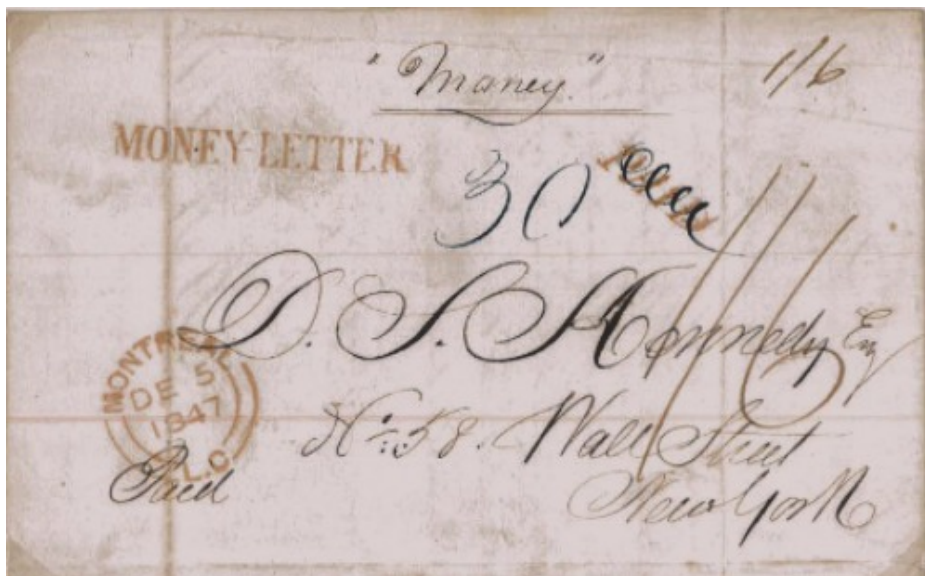 "Money" 1/6
MONEY-LETTER
30 PAID
1/6
D. S. Kennedy Esq
No. 58. Wall Street
New York
MONTREAL
DE 5
1847
L.C.
Paid